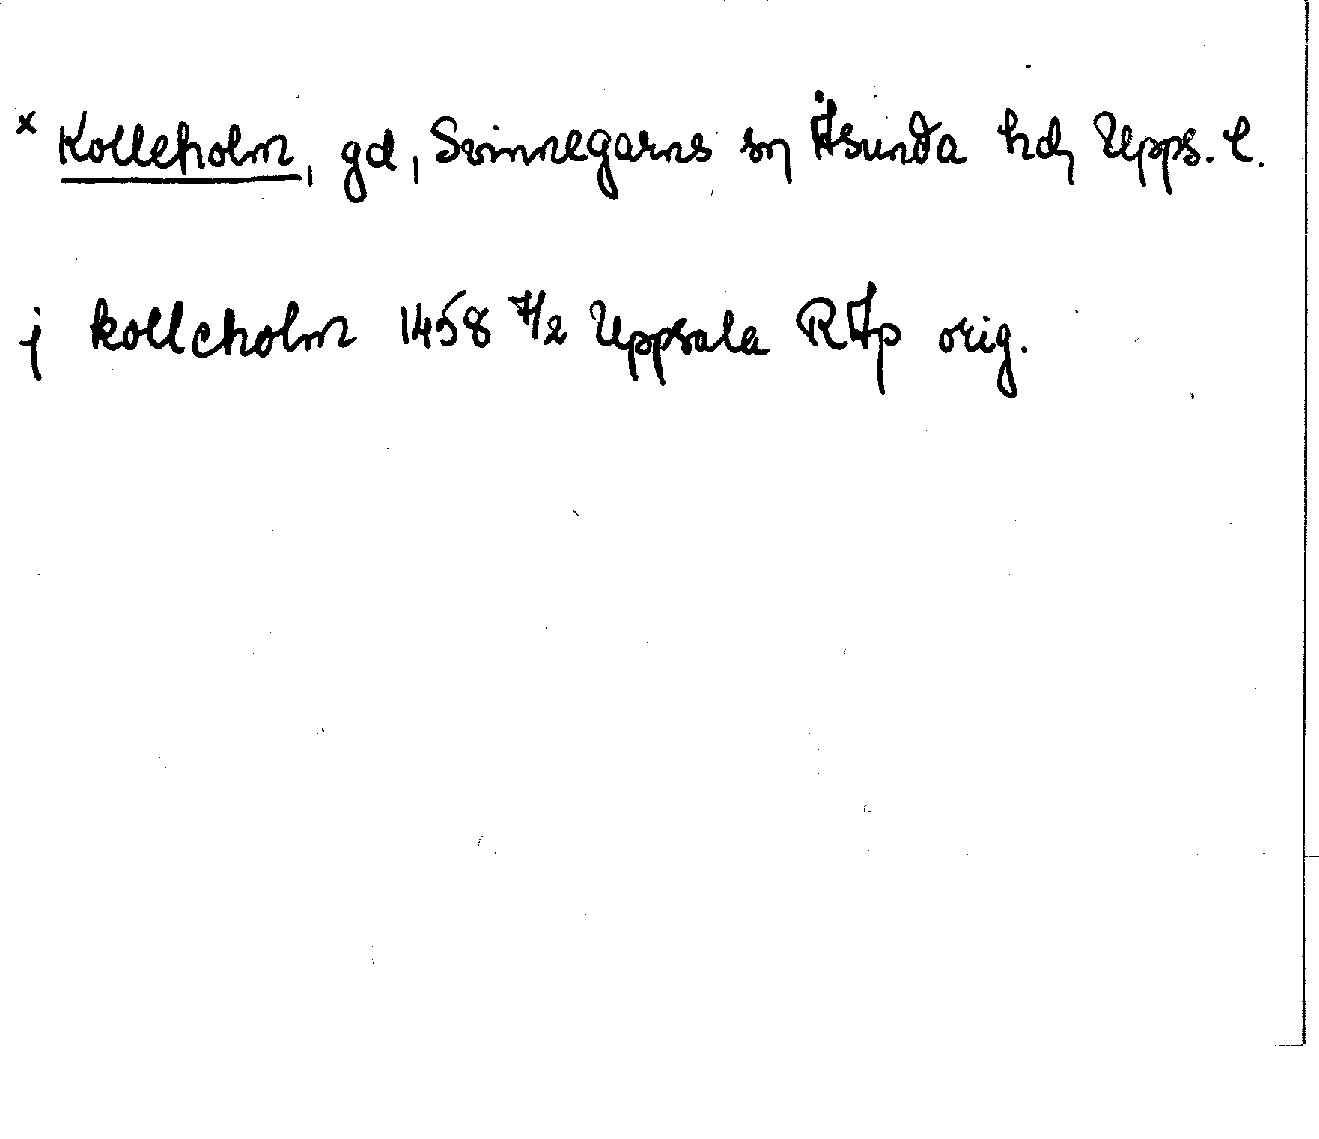 x Kolleholm, gd, Svinnegarns sn Åsunda hd, Upps. l.
j kolleholm 1458 7/2 Uppsala RAp orig.